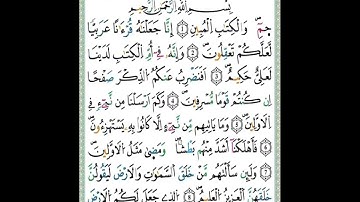 بِسْمِ اِللَّهِ اِلرَّحْمَٰنِ اِلرَّحِيمِ
حَمِٓ وَالْكِتَٰبِ اِلْمُبِينِ ١ إِنَّا جَعَلْنَٰهُ قُرْءَٰناً عَرَبِيّاً
لَّعَلَّكُمْ تَعْقِلُونَ ٢ وَإِنَّهُۥ فِےٓ أُمِّ اِلْكِتَٰبِ لَدَيْنَا
لَعَلِيٌّ حَكِيمٌ ٣ اَفَنَضْرِبُ عَنكُمُ اُلذِّكْرَ صَفْحاً
اِن كُنتُمْ قَوْماً مُّسْرِفِينَ ٤ وَكَمَ اَرْسَلْنَا مِن نَّبِےٓءٍ فِے
اِلَاوَّلِينَ ٥ وَمَا يَاتِيهِم مِّن نَّبِےٓءٍ اِلَّا كَانُواْ بِهِۦ يَسْتَهْزِءُونَ
٦ فَأَهْلَكْنَآ أَشَدَّ مِنْهُم بَطْشاً وَمَضَىٰ مَثَلُ اُلَاوَّلِينَ
٧ وَلَئِن سَأَلْتَهُم مَّنْ خَلَقَ اَلسَّمَٰوَٰتِ وَالَارْضَ لَيَقُولُنَّ
خَلَقَهُنَّ اَلْعَزِيزُ اُلْعَلِيمُ ٨ اُلذِے جَعَلَ لَكُمُ اُلَارْضَ